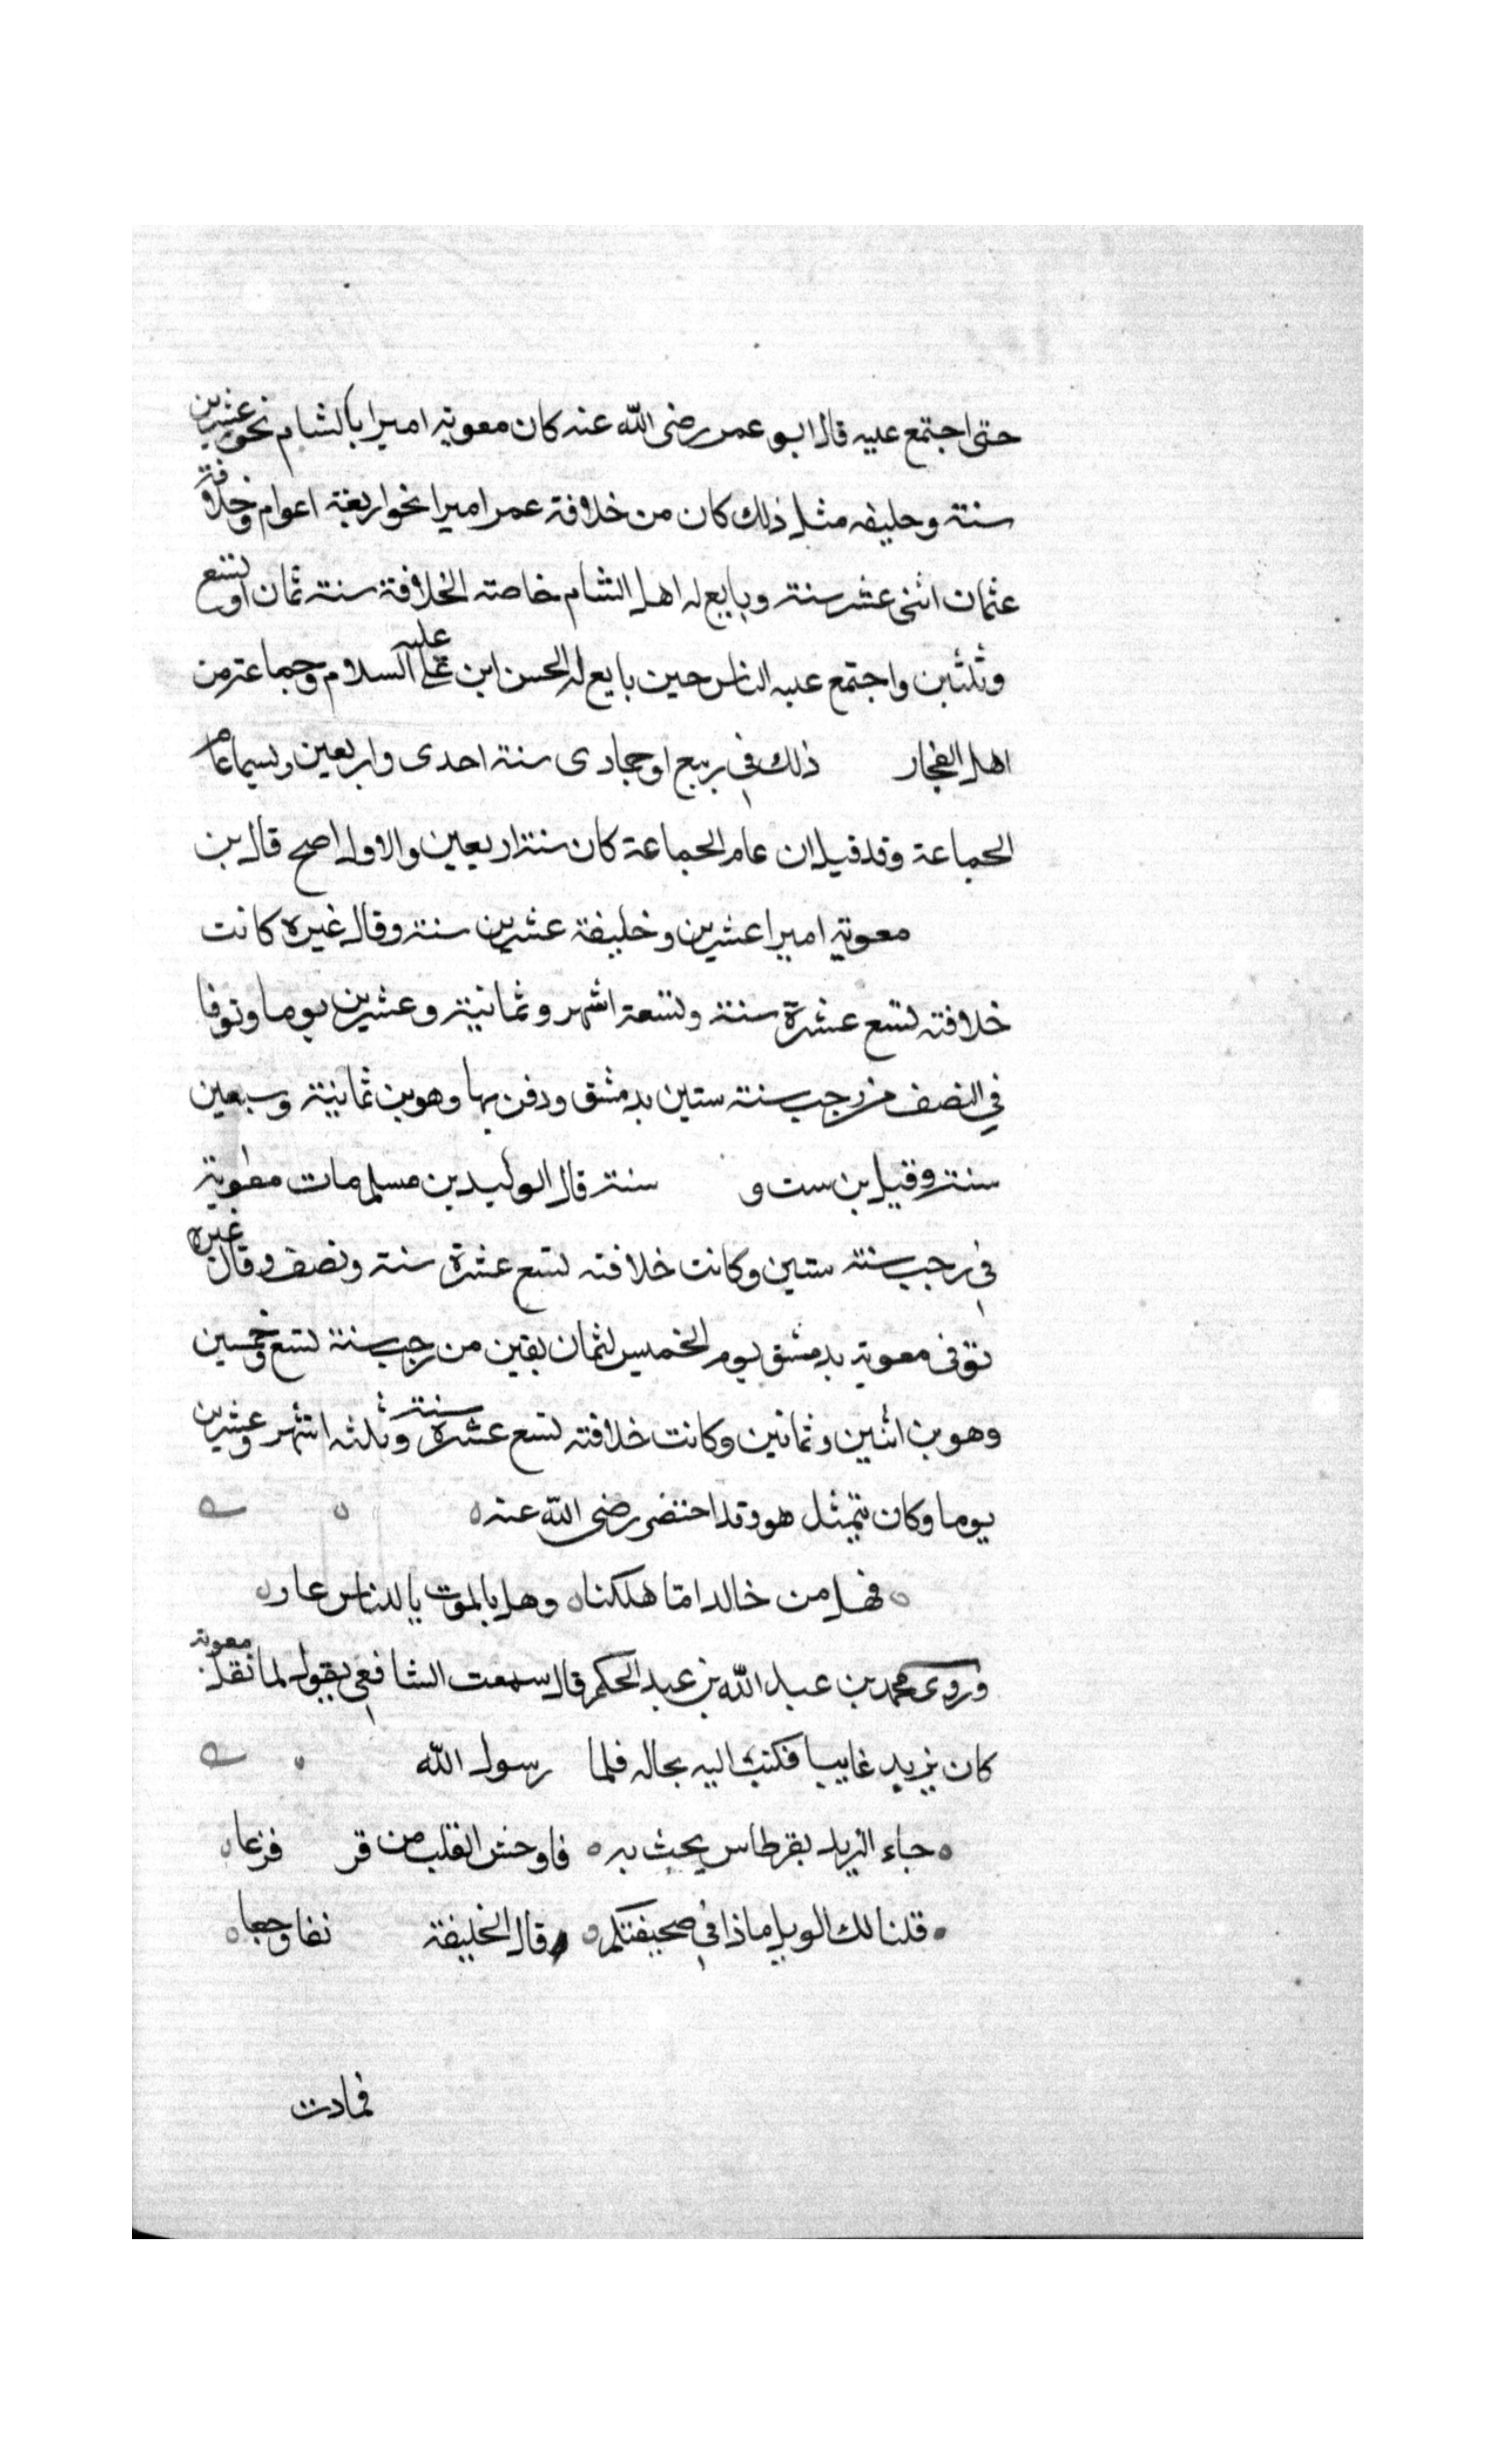 حتى اجتمع عليه قال ابو عمر رضى الله عنه كان معوية اميرا بالشام نحو عشرين
سنة وخليفه مثل ذلك كان من خلافة عمر اميرا نحو اربعة اعوام وخلافة
عثمان اثنى عشر سنة وبايع له اهل الشام خاصة الخلافة سنة ثمان او تسع
وثلثين واجتمع عليه الناس حين بايع له الحسن ابن على عليه السلام وجماعة من
اهل الفجار ذلك في ربيع او جمادى سنة احدى واربعين ويسما عام
الجماعة وقد قيل ان عام الجماعة كان سنة اربعين والاول اصح قال بن
معوية اميرا عشرين وخليفة عشرين سنة وقال غيره كانت
خلافته تسع عشرة سنة وتسعة اشهر وثمانية وعشرين يوما وتوفا
في النصف من رجب سنة ستين بدمشق ودفن بها وهو بن ثمانية وسبعين
سنة وقيل بن ست و سنة قال الوليد بن مسلم مات معوية
في رجب سنة ستين وكانت خلافته تسع عشرة سنة ونصف وقال غيره
توفى معوية بدمشق يوم الخميس لثمان بقين من رجب سنة تسع وخمسين
وهو بن اثنين وثمانين وكانت خلافته تسع عشرة سنة وثلثه اشهر وعشرين
يوما وكان يتمثل هو وقد احتضر رضى الله عنه
فهل من خالد امّا هلكنا وهل بالموت يا للناس عار
وروى محمد بن عبد الله بن عبد الحكم قال سمعت الشافعي يقول لما ثقل معوية
كان يزيد غايبا فكتب اليه بحاله فلما رسول الله
جاء البريد بقرطاس يحث به فاوجس القلب من قر فزعا
قلنا لك الويل ماذا في صحيفتكم وقال الخليفة نفا وجعا
فمادت